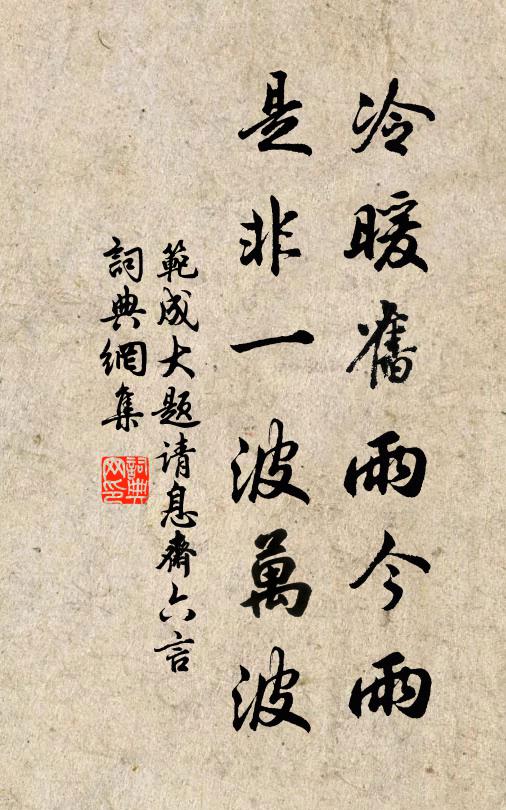 冷暖舊雨今雨
是非一波萬波
範成大题请息齋六言
詞典網集
詞典网印